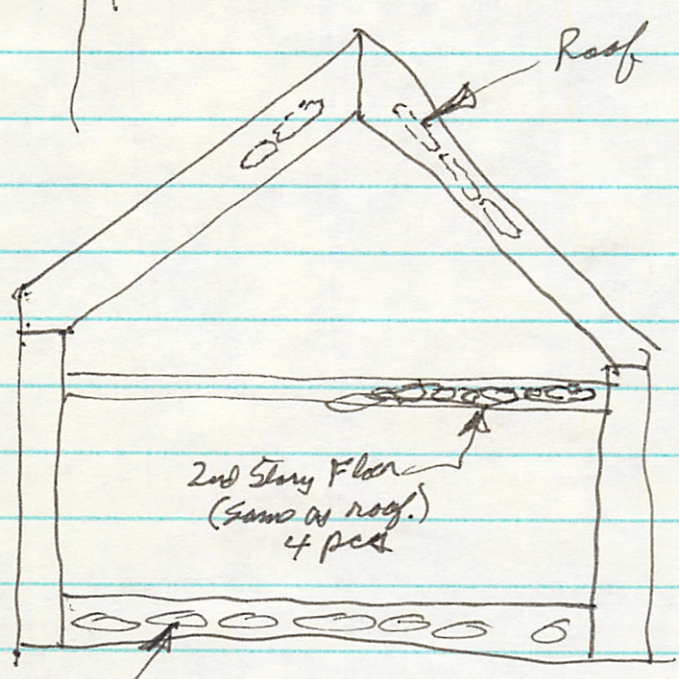 Roof
2nd Story Floor
(same as roof.)
4 pcs